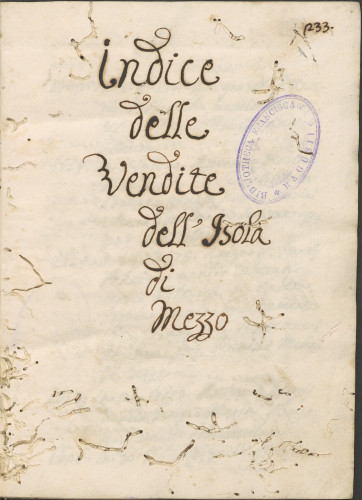 233.
Indice
delle
Vendite
dell' Isola
di
Mezzo
BIBLIOTHECA FRANCISCANA